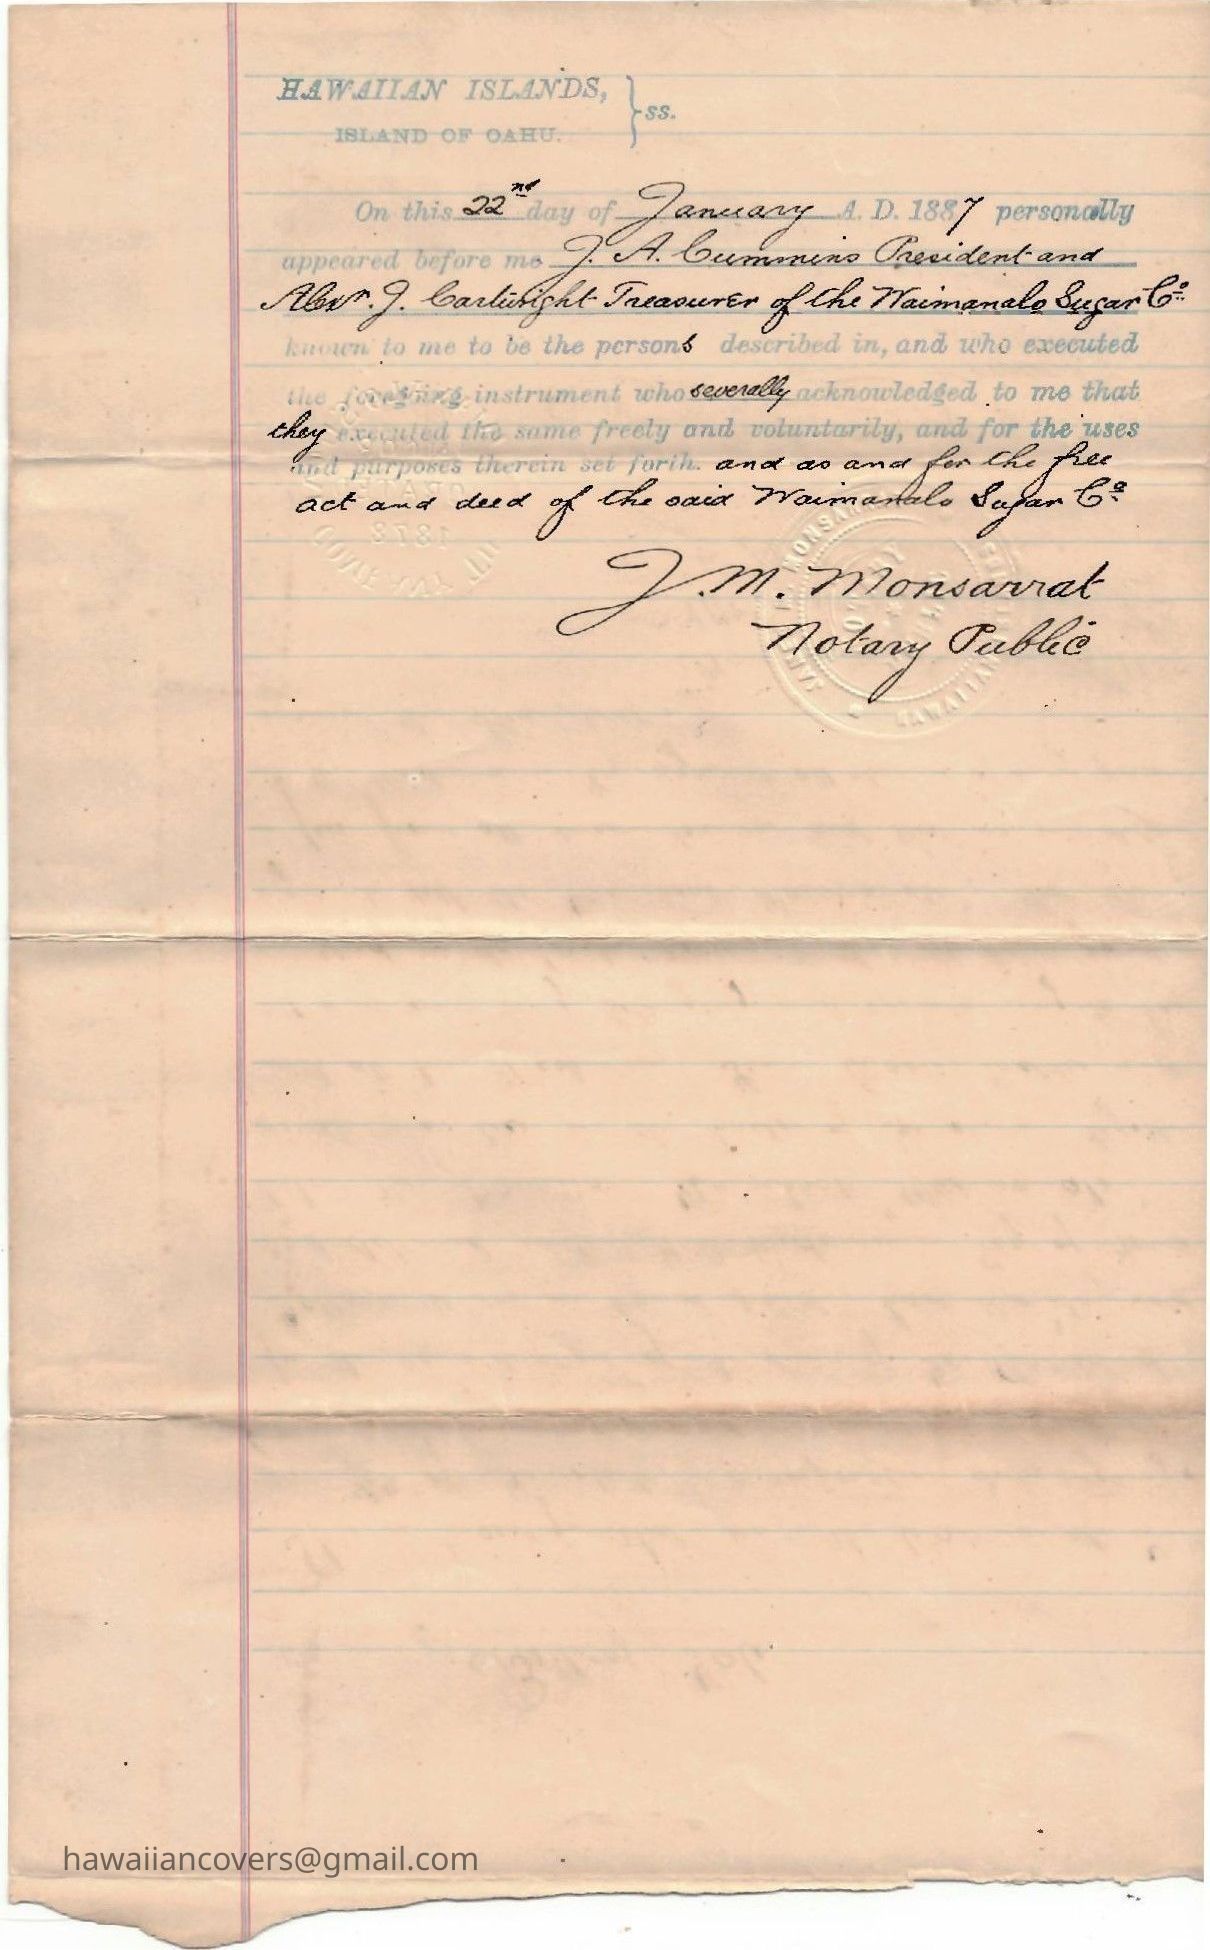 HAWAIIAN ISLANDS, } ss.
ISLAND OF OAHU.
On this 22nd day of January A. D. 1887 personally
appeared before me J. A. Cummins President and
Alexr. J. Cartwright Treasurer of the Waimanalo Sugar Co.
known to me to be the persons described in, and who executed
the foregoing instrument who severally acknowledged to me that
they executed the same freely and voluntarily, and for the uses
and purposes therein set forth. and as and for the free
act and deed of the said Waimanalo Sugar Co
J. M. Monsarrat
Notary Public
MONSAR
HAWAIIAN
1878
hawaiiancovers@gmail.com